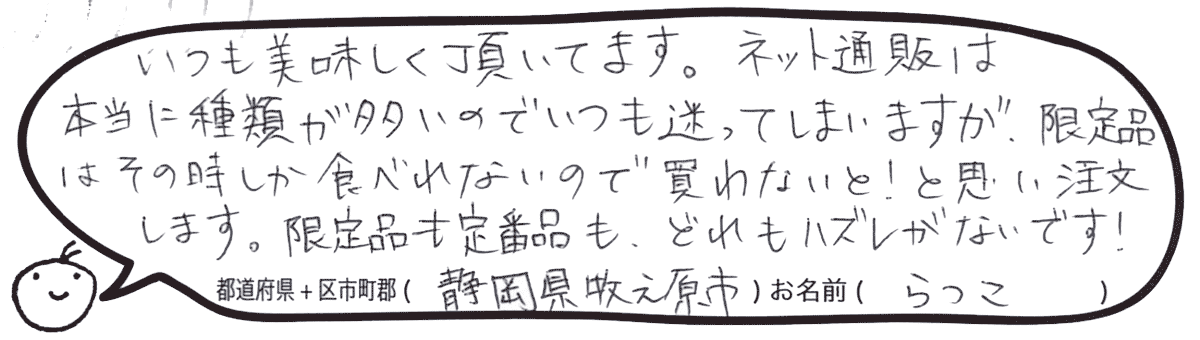 いつも美味しく頂いてます。ネット通販は
本当に種類が多いのでいつも迷ってしまいますが、限定品
はその時しか食べれないので買わないと!と思い注文
します。限定品も定番品も、どれもハズレがないです!
都道府県+区市町郡(静岡県牧之原市)お名前(らっこ)